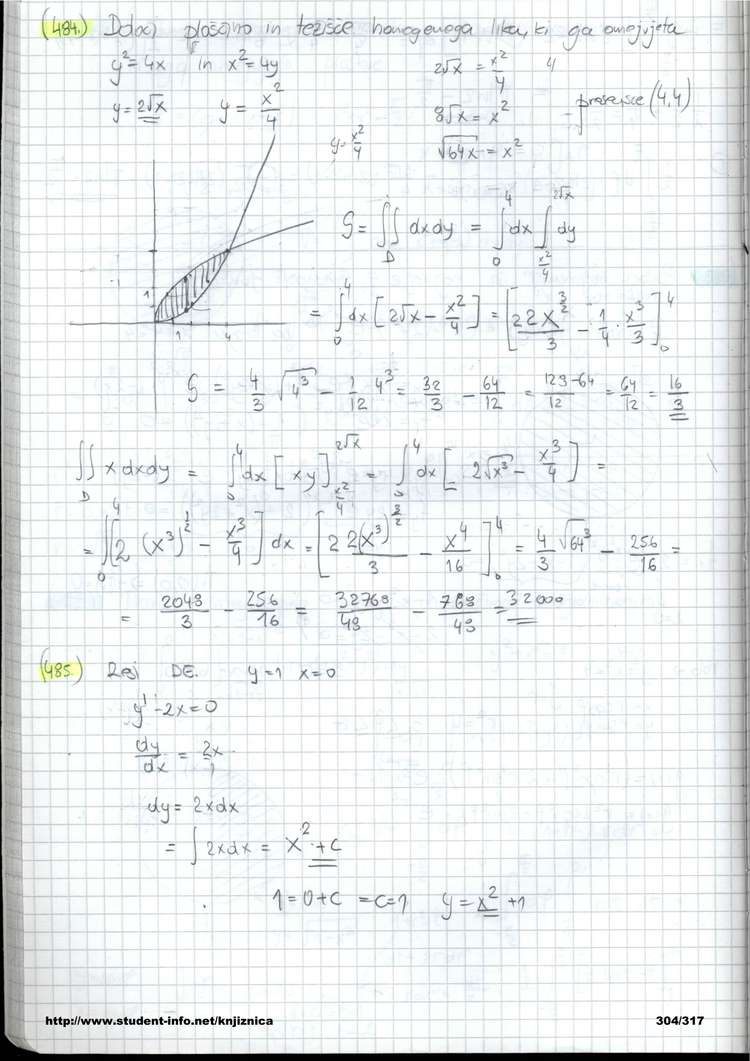 (484.) Določi ploščino in težišče homogenega lika, ki ga omejujeta
y² = 4x in x² = 4y
2√x = x²/4
y = 2√x y = x²/4
8√x = x² presečišce (4,4)
y = x²/4 √64x = x²
S = ∬_D dxdy = ∫_0^4 dx ∫_{x²/4}^{2√x} dy
= ∫_0^4 dx [2√x - x²/4] = [2 2x^{3/2}/3 - 1/4 · x³/3]_0^4
1
1 4
S = 4/3 √4³ - 1/12 4³ = 32/3 - 64/12 = 128-64/12 = 64/12 = 16/3
∬_D x dxdy = ∫_0^4 dx [xy]_{x²/4}^{2√x} = ∫_0^4 dx [2√x³ - x³/4] =
= ∫_0^4 [2 (x³)^{1/2} - x³/4] dx = [2 2(x³)^{3/2}/3 - x⁴/16]_0^4 = 4/3 √64³ - 256/16 =
= 2048/3 - 256/16 = 32768/48 - 768/48 = 32000
(485.) Reši DE. y=1 x=0
y' - 2x = 0
dy/dx = 2x/1
dy = 2xdx
= ∫ 2xdx = x² + c
1 = 0 + c = c = 1 y = x² + 1
http://www.student-info.net/knjiznica 304/317